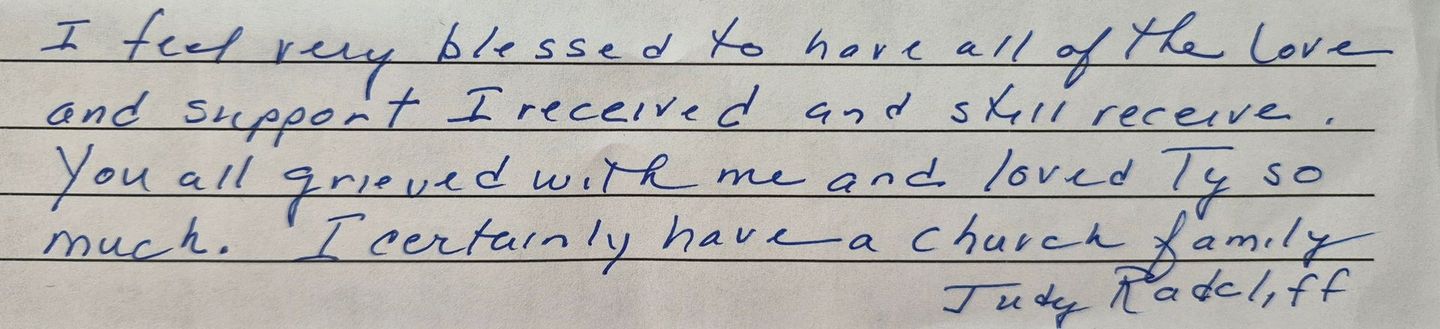 I feel very blessed to have all of the love
and support I received and still receive.
You all grieved with me and loved Ty so
much. I certainly have a church family
Judy Radcliff